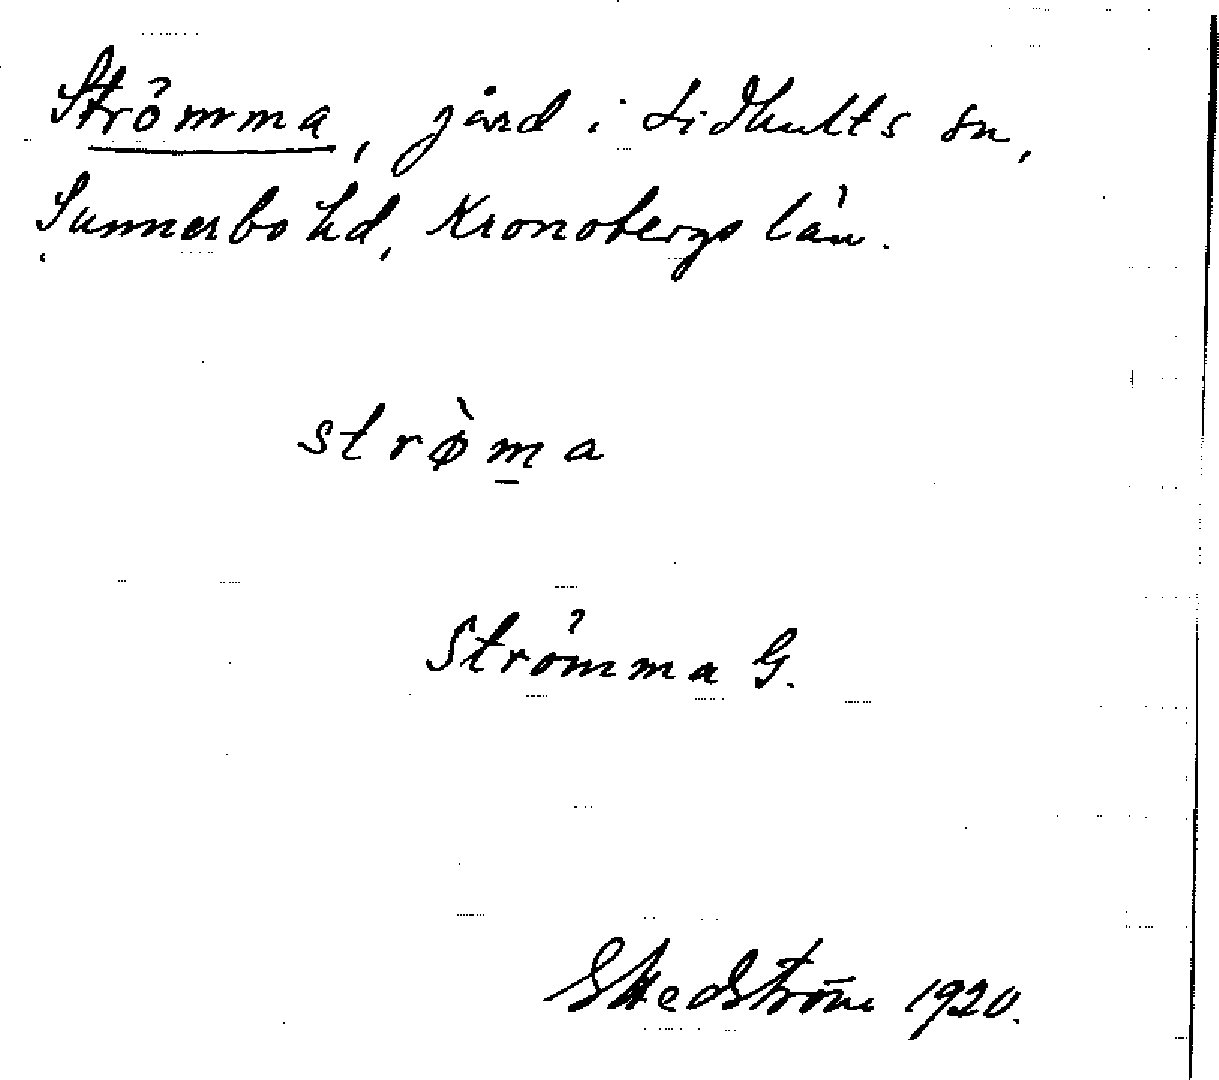 Strömma, gård i Lidhults sn,
Sunnerbo hd, Kronobergs län.
strø̀m̲a
Strömma G.
G Hedström 1920.